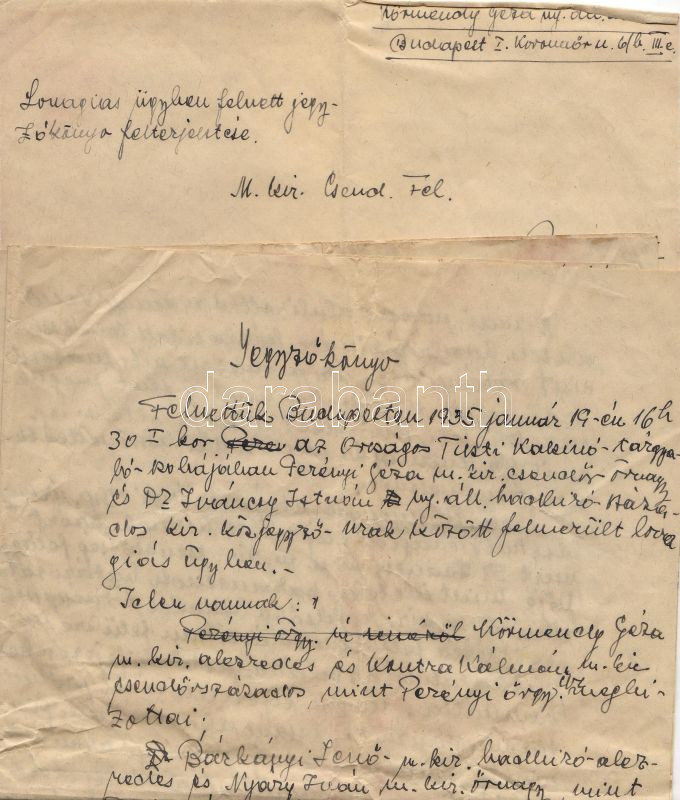 Körmendy Géza ny. áll.
Budapest I. Koronaőr u. 6/b. III. e.
Lovagias ügyben felvett jegy-
zőkönyv felterjesztése.
M. kir. Csend. Fel.
Jegyzőkönyv
Felvettük Budapesten 1935 január 19-én 16h
30 I kor Pere az Országos Tiszti Kaszinó tárgya-
ló-szobájában Perényi Géza m. kir. csendőr őrnagy
és Dr. Iváncsy István ny. áll. hadbiró-száza-
dos kir. közjegyző urak között felmerült lova-
giás ügyben.-
Jelen vannak:
Perényi őrgy. úr részéről Körmendy Géza
m. kir. alezredes és Kontra Kálmán m. kir.
csendőrszázados, mint Perényi őrgy. úr megbi-
zottai.
Dr Bárkányi Jenő m. kir. hadbiró-alez-
redes és Nyáry Iván m. kir. őrnagy, mint
darabanth